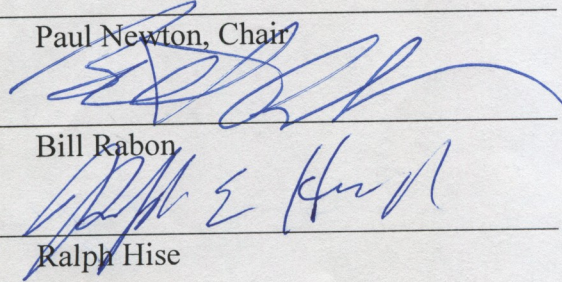 Paul Newton, Chair
Bill Rabon
Ralph E Hise
Ralph Hise